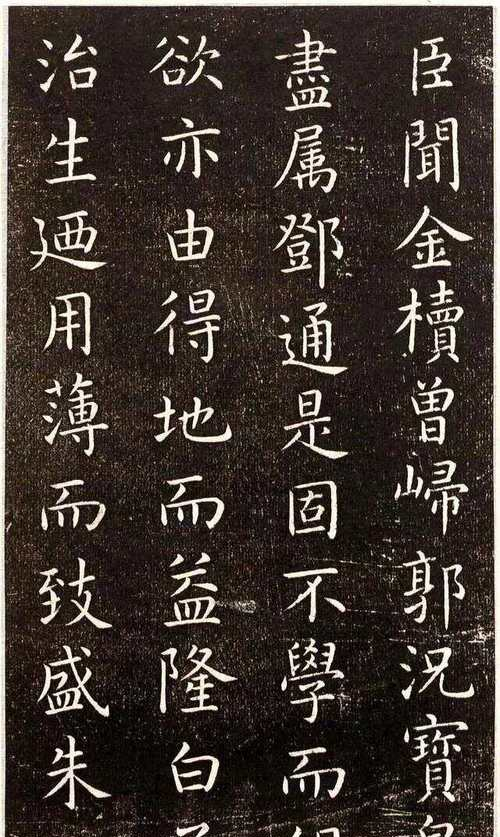 臣聞金櫝曽㱕郭況寳
盡属鄧通是固不學而
欲亦由得地而益隆白
治生廼用薄而致盛朱